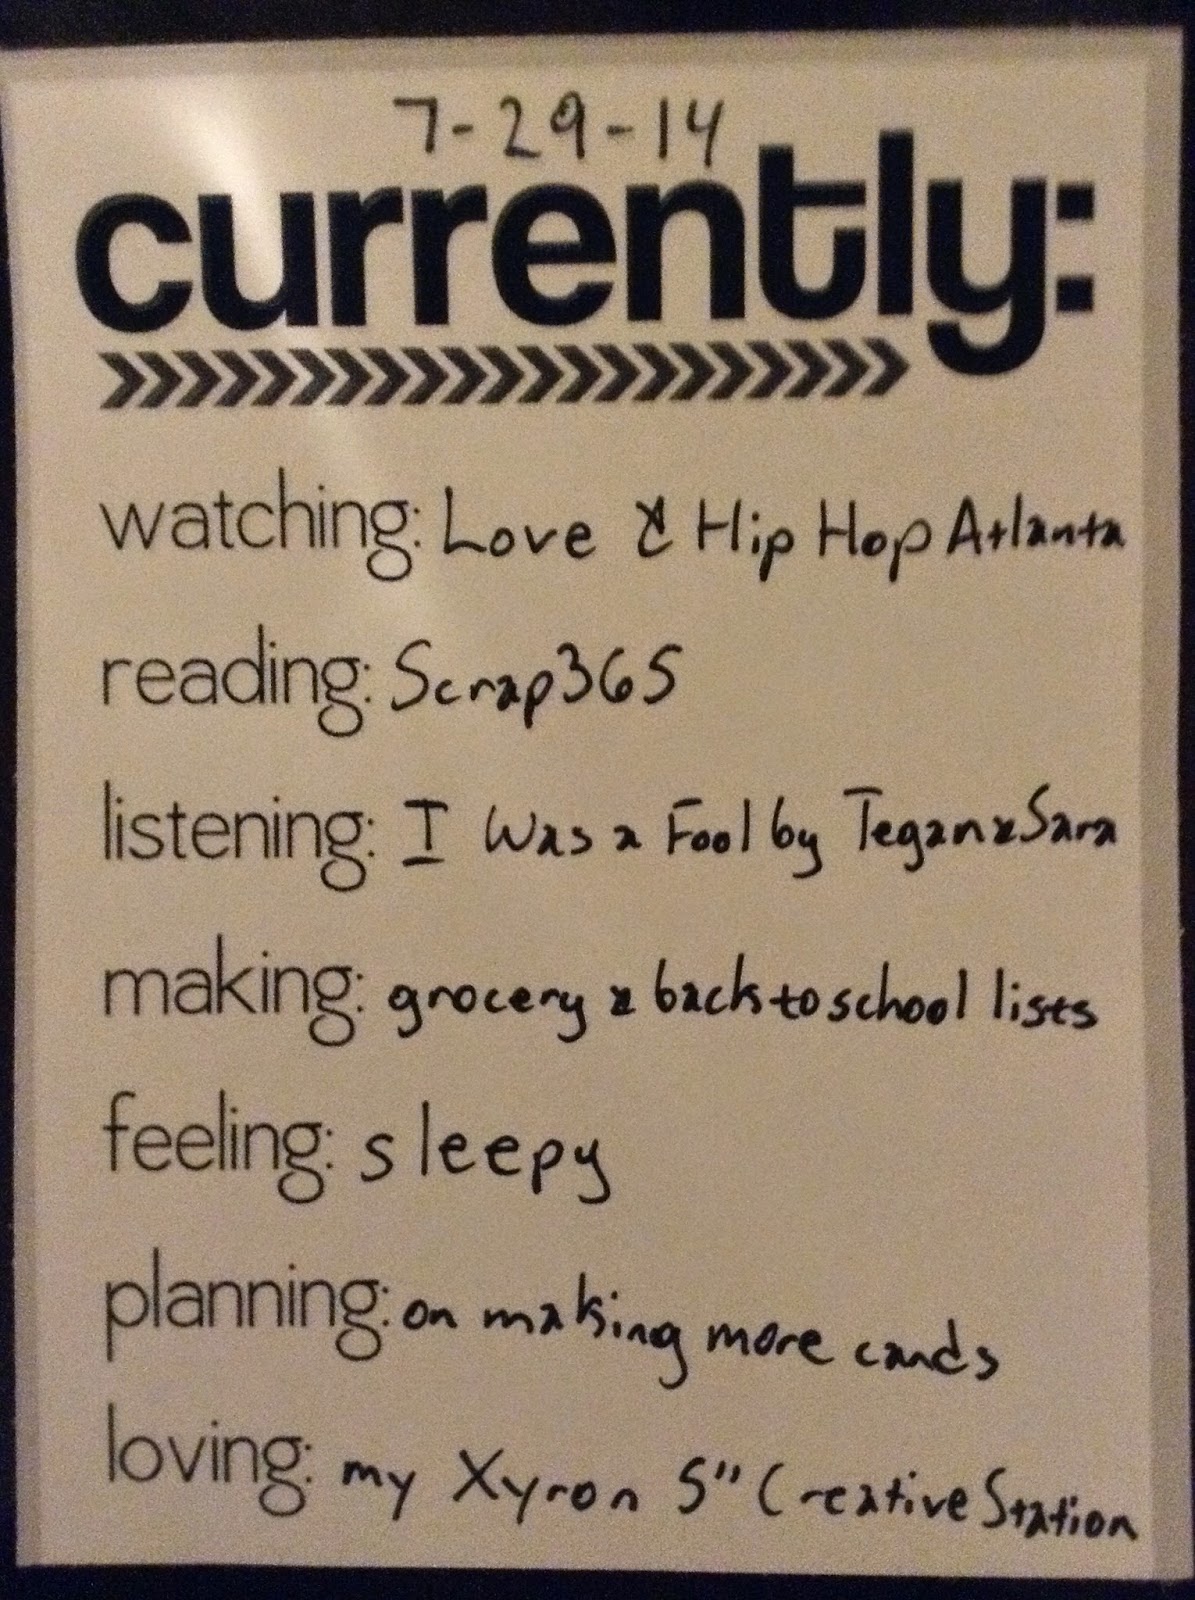 7-29-14
currently:
watching: Love & Hip Hop Atlanta
reading: Scrap365
listening: I Was a Fool by Tegan & Sara
making: grocery & back to school lists
feeling: sleepy
planning: on making more cards
loving: my Xyron 5" Creative Station